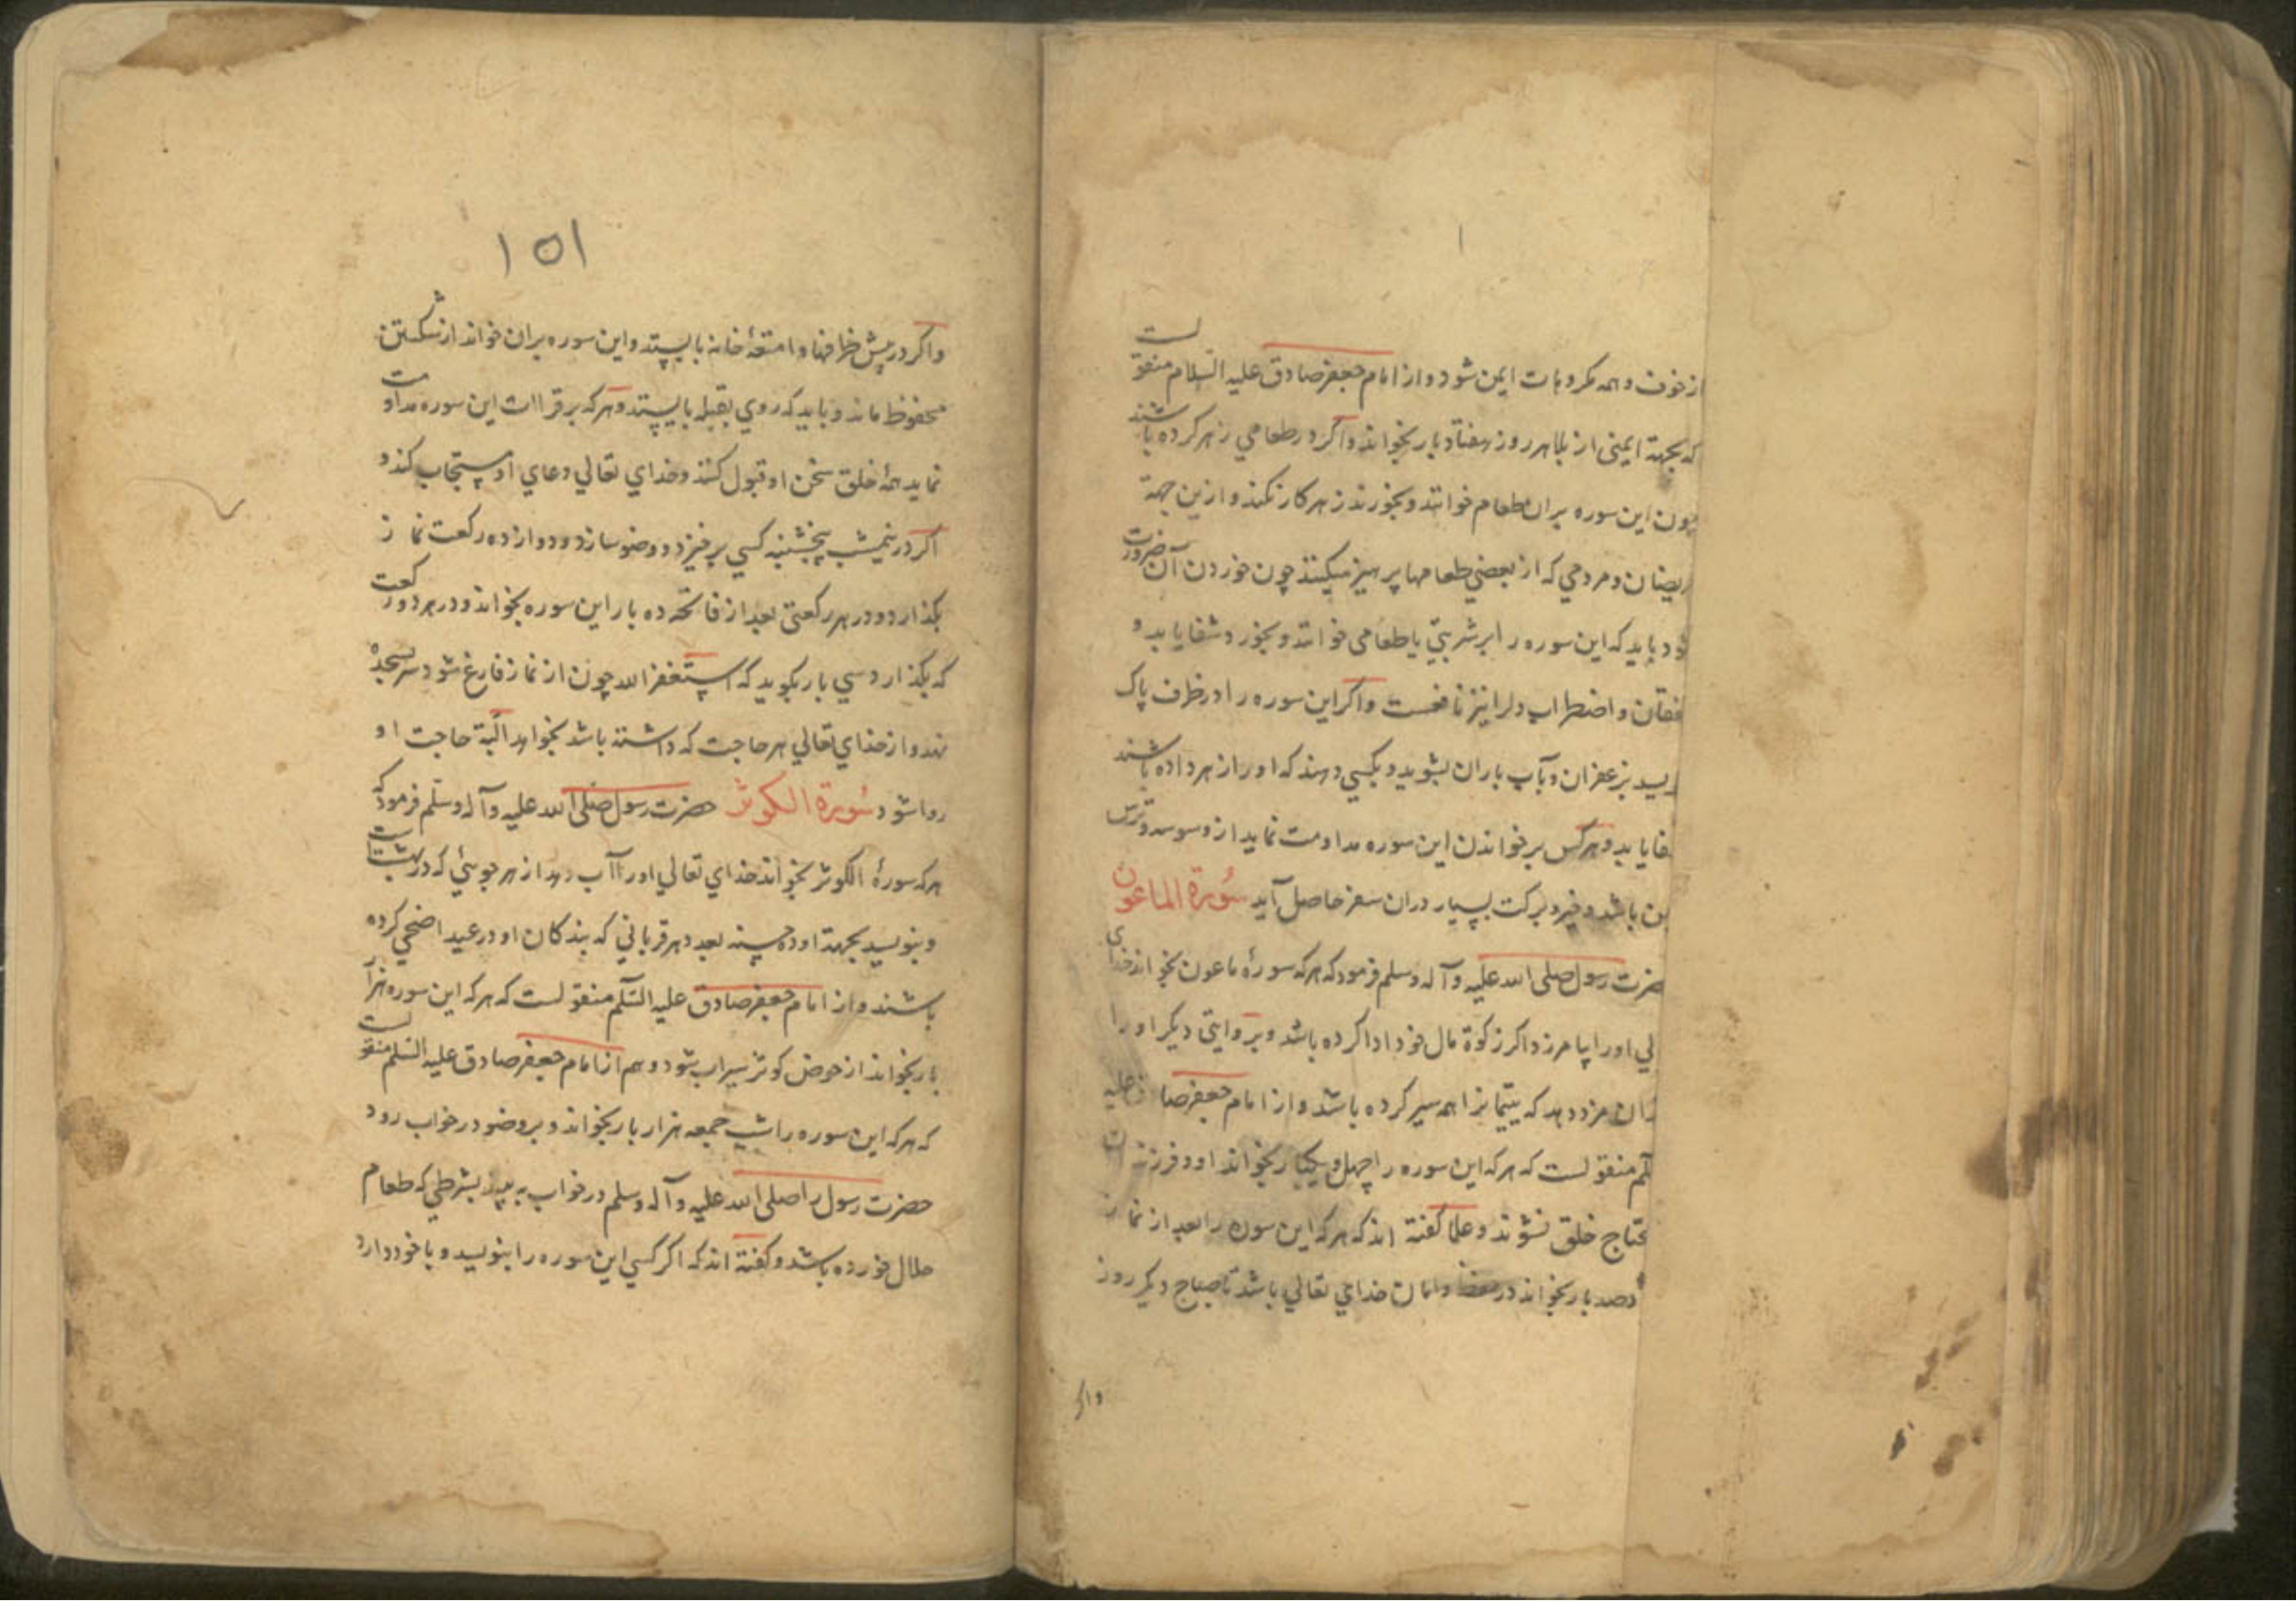 از خوف و همه مکروهات ایمن شود و از امام جعفر صادق علیه السلام منقولست
که بجهة ایمنی از بلا هر روز هفتاد بار بخواند و اکر در طعامی زهر کرده باشند
چون این سوره بران طعام خوانند و بخورند زهر کار نکند و ازین جهة
ریضان و مردمی که از بعضی طعامها پرهیز میکنند چون خوردن آن ضرورت
شود باید که این سوره را بر شربتی یا طعامی خوانند و بخورد شفا یابد و
خفقان و اضطراب دلرا نیز نافعست و اکر این سوره را در ظرف پاک
یسد بزعفران و بآب باران بشوید و بکسی دهند که او را زهر داده باشند
فا یابد و هر کس بر خواندن این سوره مداومت نماید از وسوسه و ترس
من باشد و خیر و برکت بسیار دران سفر حاصل آید سورة الماعون
حضرت رسول صلی الله علیه و آله وسلم فرمود که هر که سورهٔ ماعون بخواند خدای
لی او را بیامرزد اکر زکوة مال خود ادا کرده باشد و بروایتی دیکر او را
ان مزد دهد که یتیمانرا همه سیر کرده باشد و از امام جعفر صادق علیه
لم منقولست که هر که این سوره را چهل و یکبار بخواند او و فرزندان
محتاج خلق نشوند و علما کفته اند که هر که این سوره را بعد از نماز
صد بار بخواند در حفظ و امان خدای تعالی باشد تا صباح دیکر روز
واکر
۱۵۱
واکر در پیش ظرافها و امتعهٔ خانه بایستد و این سوره بران خواند از شکستن
محفوظ ماند و باید که روی بقبله بایستد و هر که بر قراات این سوره مداومت
نماید همهٔ خلق سخن او قبول کنند و خدای تعالی دعای او مستجاب کند و
اکر در نیمشب پنجشنبه کسی برخیزد و وضو سازد و دوازده رکعت نماز
بکذارد و در هر رکعتی بعد از فاتحه ده بار این سوره بخواند و در هر دو رکعت
که بکذارد سی بار بکوید که استغفر الله چون از نماز فارغ شود سر بسجده
نهد و از خدای تعالی هر حاجت که داشته باشد بخواهد البتة حاجت او
روا شود سورة الکوثر حضرت رسول صلی الله علیه و آله وسلم فرمود که
هر که سورهٔ الکوثر بخواند خدای تعالی او را آب دهد از هر جوئی که در بهشت است
و بنویسد بجهة او ده حسنه بعدد هر قربانی که بندکان او در عید اضحی کرده
باشند و از امام جعفر صادق علیه السلم منقولست که هر که این سوره هزار
بار بخواند از حوض کوثر سیراب شود و هم از امام جعفر صادق علیه السلم منقولست
که هر که این سوره را شب جمعه هزار بار بخواند و بر وضو در خواب رود
حضرت رسول را صلی الله علیه و آله وسلم در خواب به بیند بشرطی که طعام
حلال خورده باشد و کفته اند که اکر کسی این سوره را بنویسد و با خود دارد